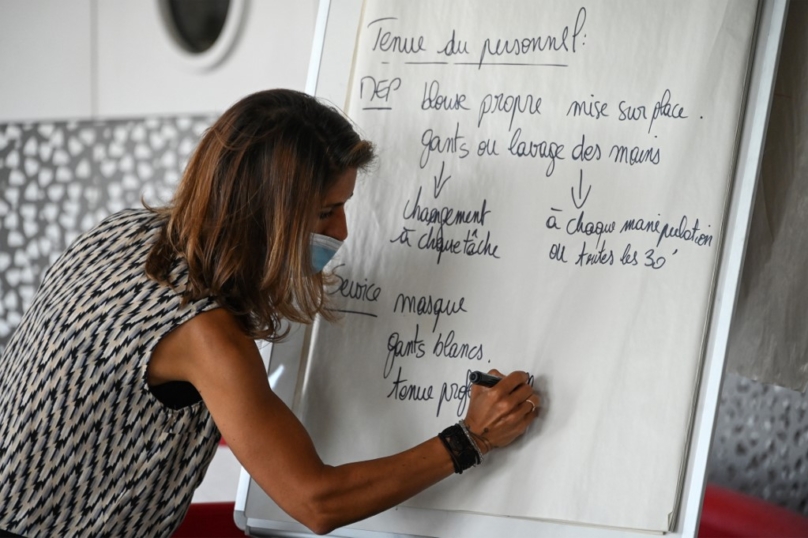 Tenue du personnel:
DEP blouse propre mise sur place.
gants ou lavage des mains
changement à chaque manipulation
à chaque tâche ou toutes les 30'
Service masque
gants blancs.
tenue